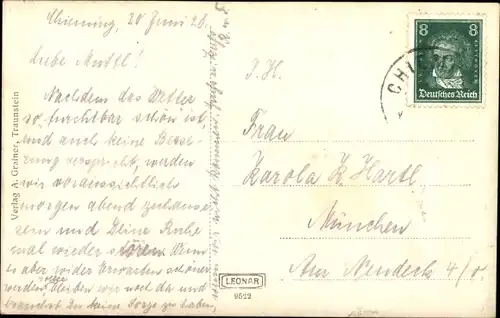 Chieming, 20 Juni 28.
Liebe Muttl!
Nachdem das Wetter
so furchtbar schön ist
und auch keine Besse-
rung verspricht, werden
wir voraussichtlich
morgen abend zuhause
sein und Deine Ruhe
mal wieder stören. Wenn
es aber wider Erwarten schöner
werden sollte bleiben wir noch da und
brauchst Du keine Sorge zu haben,
Verlag A. Grainer, Traunstein
LEONAR
9522
8 8
Deutsches Reich
CHI
I. H.
Frau
Karola K. Hartl
München
Am Neudeck 4/0.